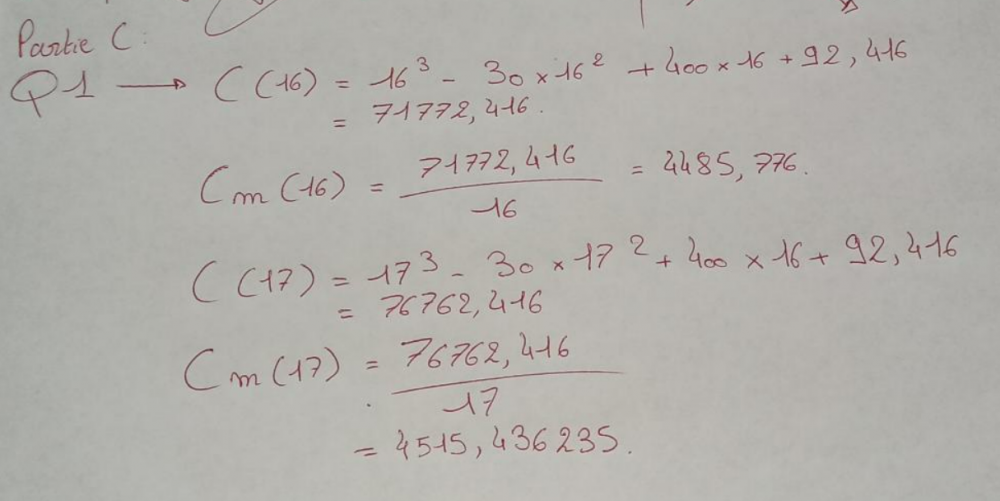 Partie C:
Q1 → C(16) = 16³ - 30 × 16² + 400 × 16 + 92,416
= 71772,416.
Cm(16) = 71772,416 / 16 = 4485,776.
C(17) = 17³ - 30 × 17² + 400 × 16 + 92,416
= 76762,416
Cm(17) = 76762,416 / 17
= 4515,436235.